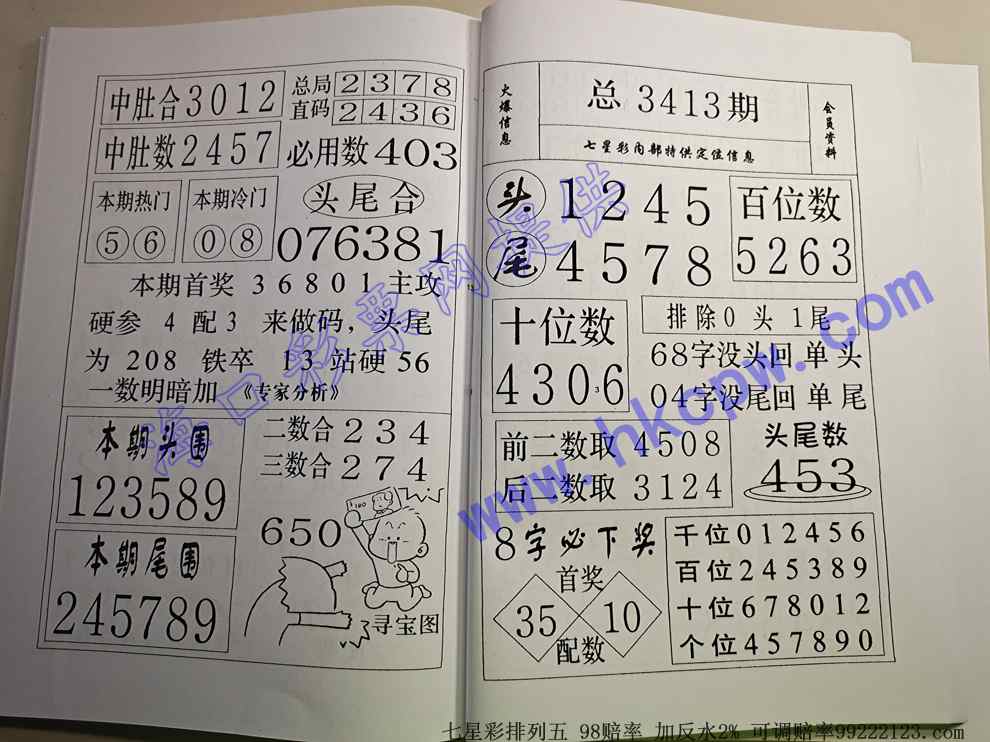 中肚合3012
总局2378
直码2436
中肚数2457
必用数403
本期热门
⑤⑥
本期冷门
⓪⑧
头尾合
076381
本期首奖 36801 主攻
硬参 4 配 3 来做码，头尾
为 208 铁卒 13 站硬 56
一数明暗加 《专家分析》
本期头围
123589
二数合 2 3 4
三数合 2 7 4
本期尾围
245789
650
寻宝图
火爆信息
总 3413期
七星彩内部特供定位信息
会员资料
头 1245
尾 4578
百位数
5263
十位数
4306
排除0 头 1尾
68字没头回 单 头
04字没尾回 单 尾
前二数取 4508
后二数取 3124
头尾数
453
8字必下奖
首奖
35 10
配数
千位012456
百位245389
十位678012
个位457890
海口彩票网提供
www.hkcpw.com
七星彩排列五 98赔率 加反水2% 可调赔率99222123.com